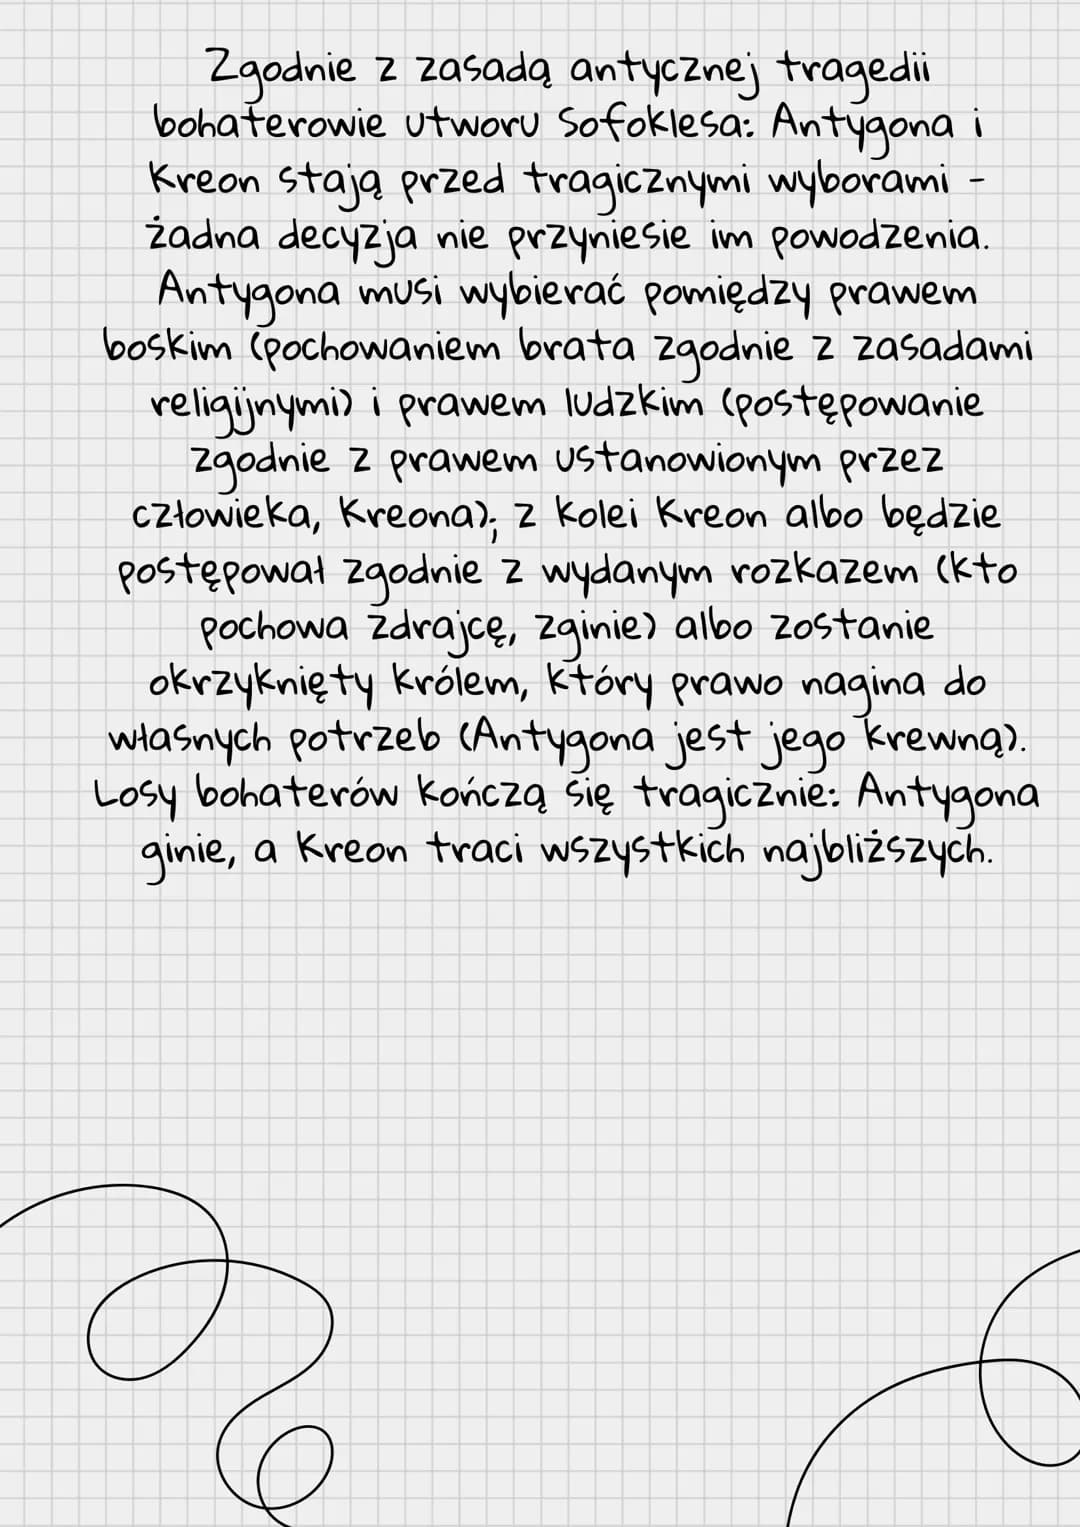 Zgodnie z zasadą antycznej tragedii
bohaterowie utworu Sofoklesa: Antygona i
Kreon stają przed tragicznymi wyborami -
żadna decyzja nie przyniesie im powodzenia.
Antygona musi wybierać pomiędzy prawem
boskim (pochowaniem brata zgodnie z zasadami
religijnymi) i prawem ludzkim (postępowanie
zgodnie z prawem ustanowionym przez
człowieka, Kreona); z kolei Kreon albo będzie
postępował zgodnie z wydanym rozkazem (kto
pochowa zdrajcę, zginie) albo zostanie
okrzyknięty królem, który prawo nagina do
własnych potrzeb (Antygona jest jego krewną).
Losy bohaterów kończą się tragicznie: Antygona
ginie, a Kreon traci wszystkich najbliższych.